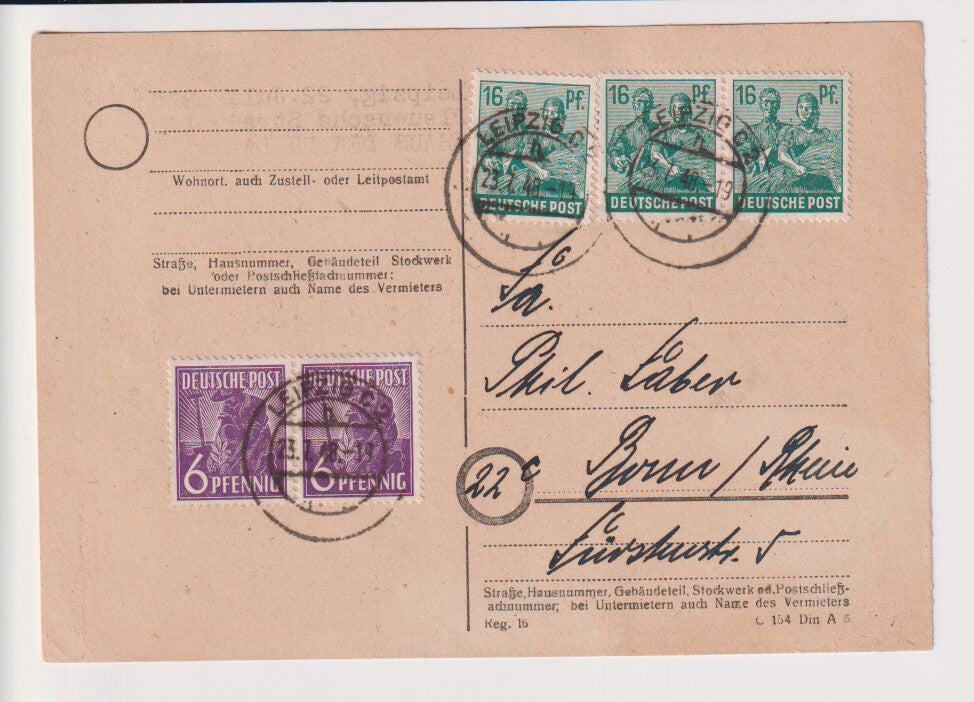 Leipzig, 22.
Wohnort, auch Zustell- oder Leitpostamt
Straße, Hausnummer, Gebäudeteil Stockwerk
oder Postschließfachnummer;
bei Untermietern auch Name des Vermieters
16 Pf.
DEUTSCHE POST
16 Pf.
DEUTSCHE POST
16 Pf.
DEUTSCHE POST
LEIPZIG C2
h
23.1.48.-19
LEIPZIG C2
h
23.1.48.-19
DEUTSCHE POST
6 PFENNIG
DEUTSCHE POST
6 PFENNIG
LEIPZIG C2
h
23.1.48.-19
Fa.
Phil. Läber
22c Bonn/Rhein
Fürstenstr. 5
Straße, Hausnummer, Gebäudeteil, Stockwerk od. Postschließ-
achnummer; bei Untermietern auch Name des Vermieters
Reg. 16
C 154 Din A 6